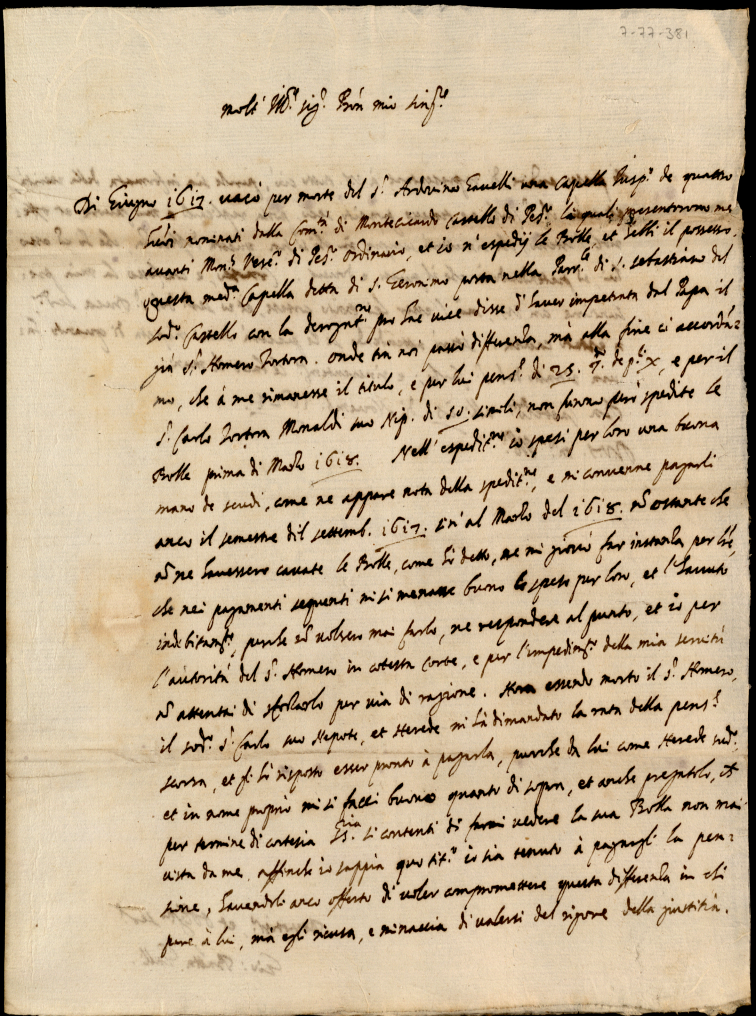 7-77-381
molt' Ill.re sig.r P̃ron mio sing.re
Di Giugno 1617. vacò per morte del S.r Ardovino Gavelli una Capella Jusp.s de quattro
heredi nominati dalla Com.tà di Monteciccardo Castello di Pes.o li quali presentorono me
avanti Mon.r Vesc.o di Pes.o ordinario, et io n'espedij le Bolle, et hebbi il possesso.
Questa med.a Capella detta di S. Geronimo posta nella Parr.le di S. Sebastiano del
sod.o Castello con la derogat.ne pro hac vice disse d'haver impetrata dal Papa il
già S.r Homero Tortora. onde trà noi passò differenza, mà alla fine ci accordá=
mo, che à me rimanesse il titulo, e per lui pens.e di 25. e per il
S.r Carlo Tortora Monaldi suo Nip. di 50. simili, non furno però spedite le
Bolle prima di Marzo 1618. Nell'espedit.ne io spesi per loro una buona
mano de scudi, come ne appare nota della spedit.ne, e mi convenne pagarli
anco il semestre dil settemb. 1617. sin' al Marzo del 1618. nõ ostante che
nõ ne havessero cavate le Bolle, come hò detto, ne mi giovò far instanza per hè,
che nei pagamenti sequenti mi si menasse buono lo speso per loro, et l'havuto
indebitam.te, perche nõ volsero mai farlo, ne respondere al punto, et io per
l'autorità del S.r Homero in cotesta corte, e per l'impedim.to della mia servitù
nõ attentai di sforzarlo per via di ragione. Hora essendo morto il S.r Homero,
il sod.o S.r Carlo suo Nepote, et Herede mi hà dimandato la rata della pens.e
scorsa, et gli hò risposto esser pronto à pagarla, purche da lui come Herede sud.o
et in nome proprio mi si facci buono quanto di sopra, et anche pregatolo, ch
per termine di cortesia si contenti di farmi vedere la sua Bolla non mai
vista da me. affinche io sappia quo tit.o io sia tenuto à pagargli la pen=
sione, havendoli anco offerto di voler compromettere questa differenza in chi
pare à lui, mà egli ricusa, e minaccia di valersi del rigore della giustitia.